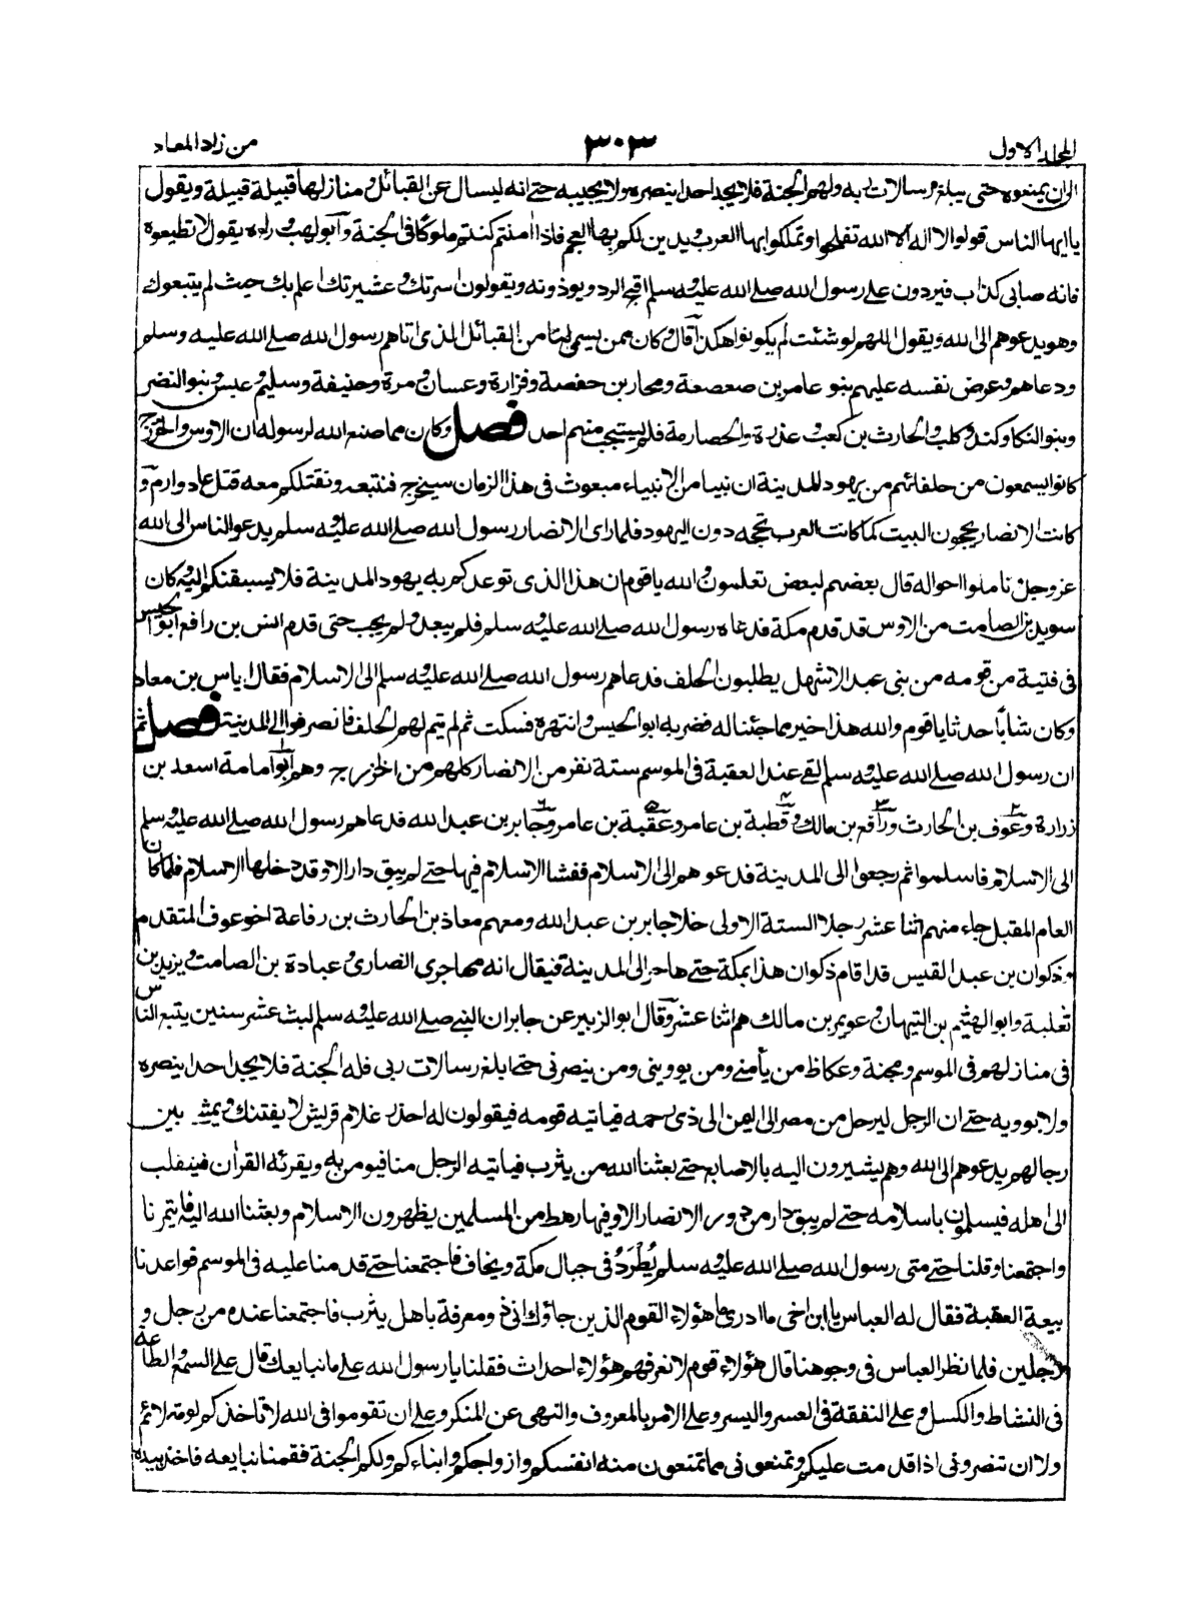 المجلد الاول
٣٠٣
من زاد المعاد
الى ان يمنعوه حتى يبلغ رسالات ربه ولهم الجنة فلا يجد احدا ينصره ولا يجيبه حتى انه ليسال عن القبائل ومنازلها قبيلة قبيلة ويقول
يا ايها الناس قولوا لا اله الا الله تفلحوا وتملكوا بها العرب ويدين لكم بها العجم فاذا امنتم كنتم ملوكا فى الجنة وابو لهب وراءه يقول لا تطيعوه
فانه صابى كذاب فيردون على رسول الله صلى الله عليه وسلم اقبح الرد ويوذونه ويقولون اسرتك وعشيرتك اعلم بك حيث لم يتبعوك
وهو يدعوهم الى الله ويقول اللهم لو شئت لم يكونوا هكذا قال وكان ممن يسمى لنا من القبائل الذى اتاهم رسول الله صلى الله عليه وسلم
ودعاهم وعرض نفسه عليهم بنو عامر بن صعصعة ومحارب بن حفصة وفزارة وغسان ومرة وحنيفة وسليم وعبس وبنو النضر
وبنو البكا وكندة وكلب والحارث بن كعب وعذرة والحصارمة فلم يستجب منهم احد فصل وكان مما صنع الله لرسوله ان الاوس والخزرج
كانوا يسمعون من حلفائهم من يهود المدينة ان نبيا من الانبياء مبعوث فى هذا الزمان سيخرج فنتبعه ونقتلكم معه قتل عاد وارم و
كانت الانصار يحجون البيت كما كانت العرب تحجه دون اليهود فلما راى الانصار رسول الله صلى الله عليه وسلم يدعو الناس الى الله
عز وجل وتاملوا احواله قال بعضهم لبعض تعلمون والله يا قوم ان هذا الذى توعدكم به يهود المدينة فلا يسبقنكم اليه وكان
سويد بن الصامت من الاوس قد قدم مكة فدعاه رسول الله صلى الله عليه وسلم فلم يبعد ولم يجب حتى قدم انس بن رافع ابو الحيسر
فى فتية من قومه من بنى عبد الاشهل يطلبون الحلف فدعاهم رسول الله صلى الله عليه وسلم الى الاسلام فقال اياس بن معاذ
وكان شابا حدثا يا قوم والله هذا خير مما جئنا له فضربه ابو الحيسر وانتهره فسكت ثم لم يتم لهم الحلف فانصرفوا الى المدينة فصل ثم
ان رسول الله صلى الله عليه وسلم لقى عند العقبة فى الموسم ستة نفر من الانصار كلهم من الخزرج وهم ابو امامة اسعد بن
زرارة وعوف بن الحارث ورافع بن مالك وقطبة بن عامر وعقبة بن عامر وجابر بن عبد الله فدعاهم رسول الله صلى الله عليه وسلم
الى الاسلام فاسلموا ثم رجعوا الى المدينة فدعوهم الى الاسلام ففشا الاسلام فيها حتى لم يبق دار الا وقد دخلها الاسلام فلما كان
العام المقبل جاء منهم اثنا عشر رجلا الستة الاولى خلا جابر بن عبد الله ومعهم معاذ بن الحارث بن رفاعة اخو عوف المتقدم
وذكوان بن عبد القيس قد اقام ذكوان هذا بمكة حتى هاجر الى المدينة فيقال انه مهاجرى انصارى وعبادة بن الصامت ويزيد بن
ثعلبة وابو الهيثم بن التيهان وعويمر بن مالك هم اثنا عشر وقال ابو الزبير عن جابر ان النبى صلى الله عليه وسلم لبث عشر سنين يتبع الناس
فى منازلهم فى الموسم ومجنة وعكاظ من يأمنى ومن يووينى ومن ينصرنى حتى ابلغ رسالات ربى فله الجنة فلا يجد احدا ينصره
ولا يوويه حتى ان الرجل ليرحل من مصر الى اليمن الى ذى رحمه فياتيه قومه فيقولون له احذر غلام قريش لا يفتنك ويمشى بين
رجالهم يدعوهم الى الله وهم يشيرون اليه بالاصابع حتى بعثنا الله من يثرب فياتيه الرجل منا فيومن به ويقرئه القران فينقلب
الى اهله فيسلمون باسلامه حتى لم يبق دار من دور الانصار الا وفيها رهط من المسلمين يظهرون الاسلام وبعثنا الله اليه فايتمرنا
واجتمعنا وقلنا حتى متى رسول الله صلى الله عليه وسلم يُطْرَدُ فى جبال مكة ويخاف فاجتمعنا حتى قدمنا عليه فى الموسم فواعدنا
بيعة العقبة فقال له العباس يا ابن اخى ما ادرى ما هؤلاء القوم الذين جاؤك انى ذو معرفة باهل يثرب فاجتمعنا عنده من رجل و
رجلين فلما نظر العباس فى وجوهنا قال هؤلاء قوم لا نعرفهم هؤلاء احداث فقلنا يا رسول الله على ما نبايعك قال على السمع والطاعة
فى النشاط والكسل وعلى النفقة فى العسر واليسر وعلى الامر بالمعروف والنهى عن المنكر وعلى ان تقوموا فى الله لا تاخذكم لومة لائم
ولا ان تنصرونى اذا قدمت عليكم وتمنعونى مما تمنعون منه انفسكم وازواجكم وابناءكم ولكم الجنة فقمنا نبايعه فاخذ بيده